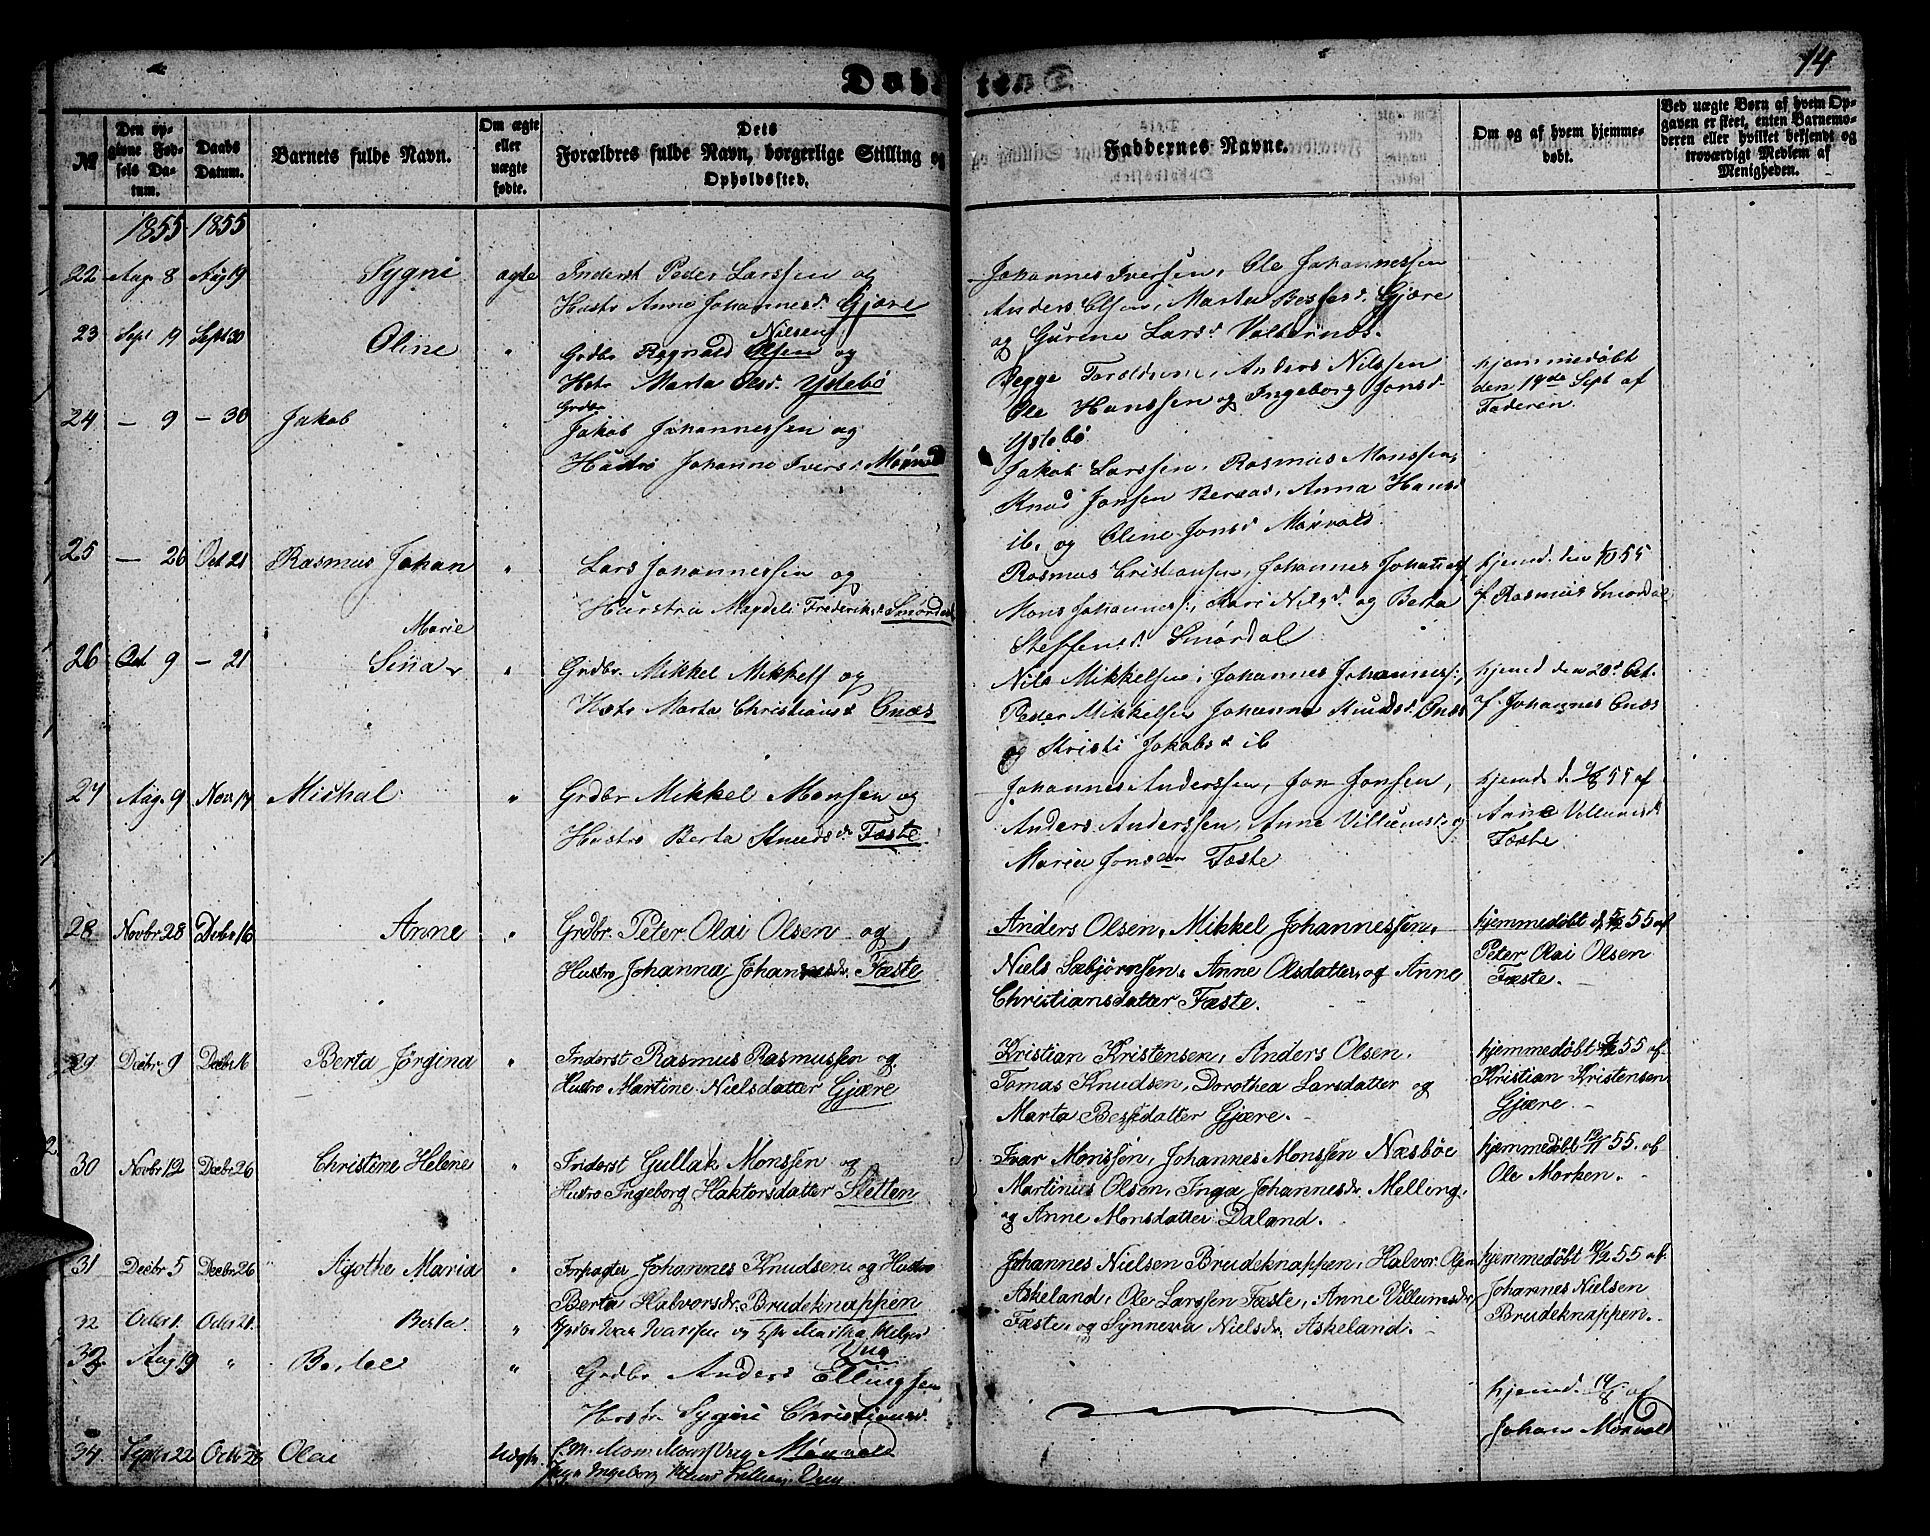 14
Døb
te
№
Den op-
givne Fød-
sels Da-
tum.
Daabs
Datum.
Barnets fulde Navn.
Om ægte
eller
uægte
fødte.
Dets
Forældres fulde Navn, borgerlige Stilling og
Opholdssted.
Faddernes Navne.
Om og af hvem hjemme-
døbt.
Ved uægte Børn af hvem Op-
gaven er skeet, enten Barnemo-
deren eller hvilket bekjendt og
troværdigt Medlem af
Menigheden.
1855 1855
22 Aug. 8 Aug 19 Sygni ægte Inderst Peder Larssen og
Hustr Anne Johannesd. Gjære
Johannes Iversen, Ole Johannessen
Anders Olsen, Marta Besses d. Gjære
og Gurine Lars d
23 Sept 19 Sept 30 Oline " Grdbr Ragnald Olsen og
Nilsen
Hstr Marta Olsd. Ystebø
Begge, Anders Nilssen
Ole Hanssen og Ingeborg Jonsd.
Ystebø
hjemmedøbt
den 19de Sept af
Faderen.
24 – 9 – 30 Jakob " Grdbr
Jakob Johannessen og
Hustro Johanne Ivers d.
Jakob Larssen, Rasmus Monssen,
Knud Jonsen, Anna Hans d
ib. og Oline Jons d Mønvold
25 – 26 Oct 21 Rasmus Johan " Lars Johannessen og
Hustru Magdeli Frederiks d
Rasmus Cristiansen, Johannes
Mons Johanness:, Kari Nils d. og Berta
Steffens d. Smørdal
hjemd. den 1/10 55
af Rasmus Smørdal
26 Oct 9 – 21 Marie
Sina " Grdbr. Mikkel Mikkels og
Hstr Marta Christians d Onæs
Nils Mikkelsen, Johannes Johanness:,
Peder Mikkelsen Johanne Knuds d. Onæs
og Kristi Jakobs d ib
hjemd den 20d Oct.
af Johannes Onæs
27 Aug. 9 Nov. 14 Michal " Grdbr Mikkel Monsen og
Hustro Berta Knuds dr Fæste.
Johannes Anderssen, Jon Jonsen,
Anders Anderssen, Anne Villums d og
Maria Jons Fæste
hjemd d. 9/8 55 af
Anne Villums d
Fæste
28 Novbr 28 Debr 16 Anne " Grdbr. Peter Olai Olsen og
Hustro Johanna Johannesdr. Fæste
Anders Olsen, Mikkel Johannessen,
Niels Sæbjørnsen, Anne Olsdatter, og Anne
Christiansdatter Fæste.
hjemmedøbt d. 5/12 55 af
Peter Olai Olsen
Fæste.
29 Decbr 9 Decbr 16 Berta Jørgina " Inderst Rasmus Rasmussen og
Hustro Martine Nielsdatter Gjære
Kristian Kristensen, Anders Olsen,
Tomas Knudsen, Dorothea Larsdatter og
Marta Bessedatter Gjære.
hjemmedøbt 55 af
Kristian Kristensen
Gjære.
30 Novbr 12 Decbr 26 Christine Helene " Inderst Gullak Monssen og
Hustro Ingeborg Haktorsdatter Sletten
Ivar Monssen, Johannes Monssen Næsbøe
Martinus Olsen, Inga Johannesdr. Melling,
og Anne Monsdatter Daland.
hjemmedøbt 12/11 55. af
Ole Morken.
31 Decbr 5 Decbr 26 Agothe Maria " Forpagter Johannes Knudsen og Hustro
Berta Halvorsdr. Brudeknappen
Johannes Nielsen Brudeknappen, Halvor Olsen
Askeland, Ole Larssen Fæste, Anne Villumsdr
Fæste, og Synneva Nielsdr. Askeland.
hjemmedøbt 55 af
Johannes Nielsen
Brudeknappen.
32 Octbr 1. Octbr 21. Berta. " Grdbr Ivar Ivarsen og Marthe
33 Aug 19 " Bertel " Grdbr Anders Ellingsen
Hustr Sygni Christiansd.
hjemd. 19/8. af
Johan Mønvold
34 Septbr 22 Octbr 28 Olai Uægte Mons Mønvold
Ingeborg